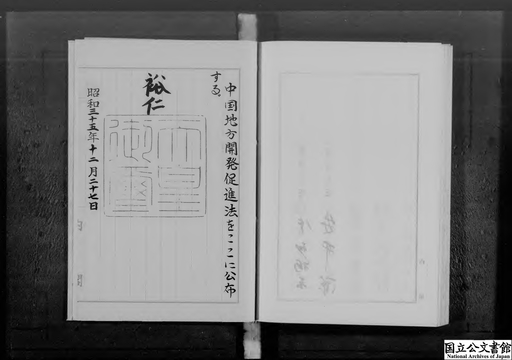 中国地方開発促進法をここに公布
する。
裕仁
天皇御璽
昭和三十五年十二月二十七日
国立公文書館
National Archives of Japan